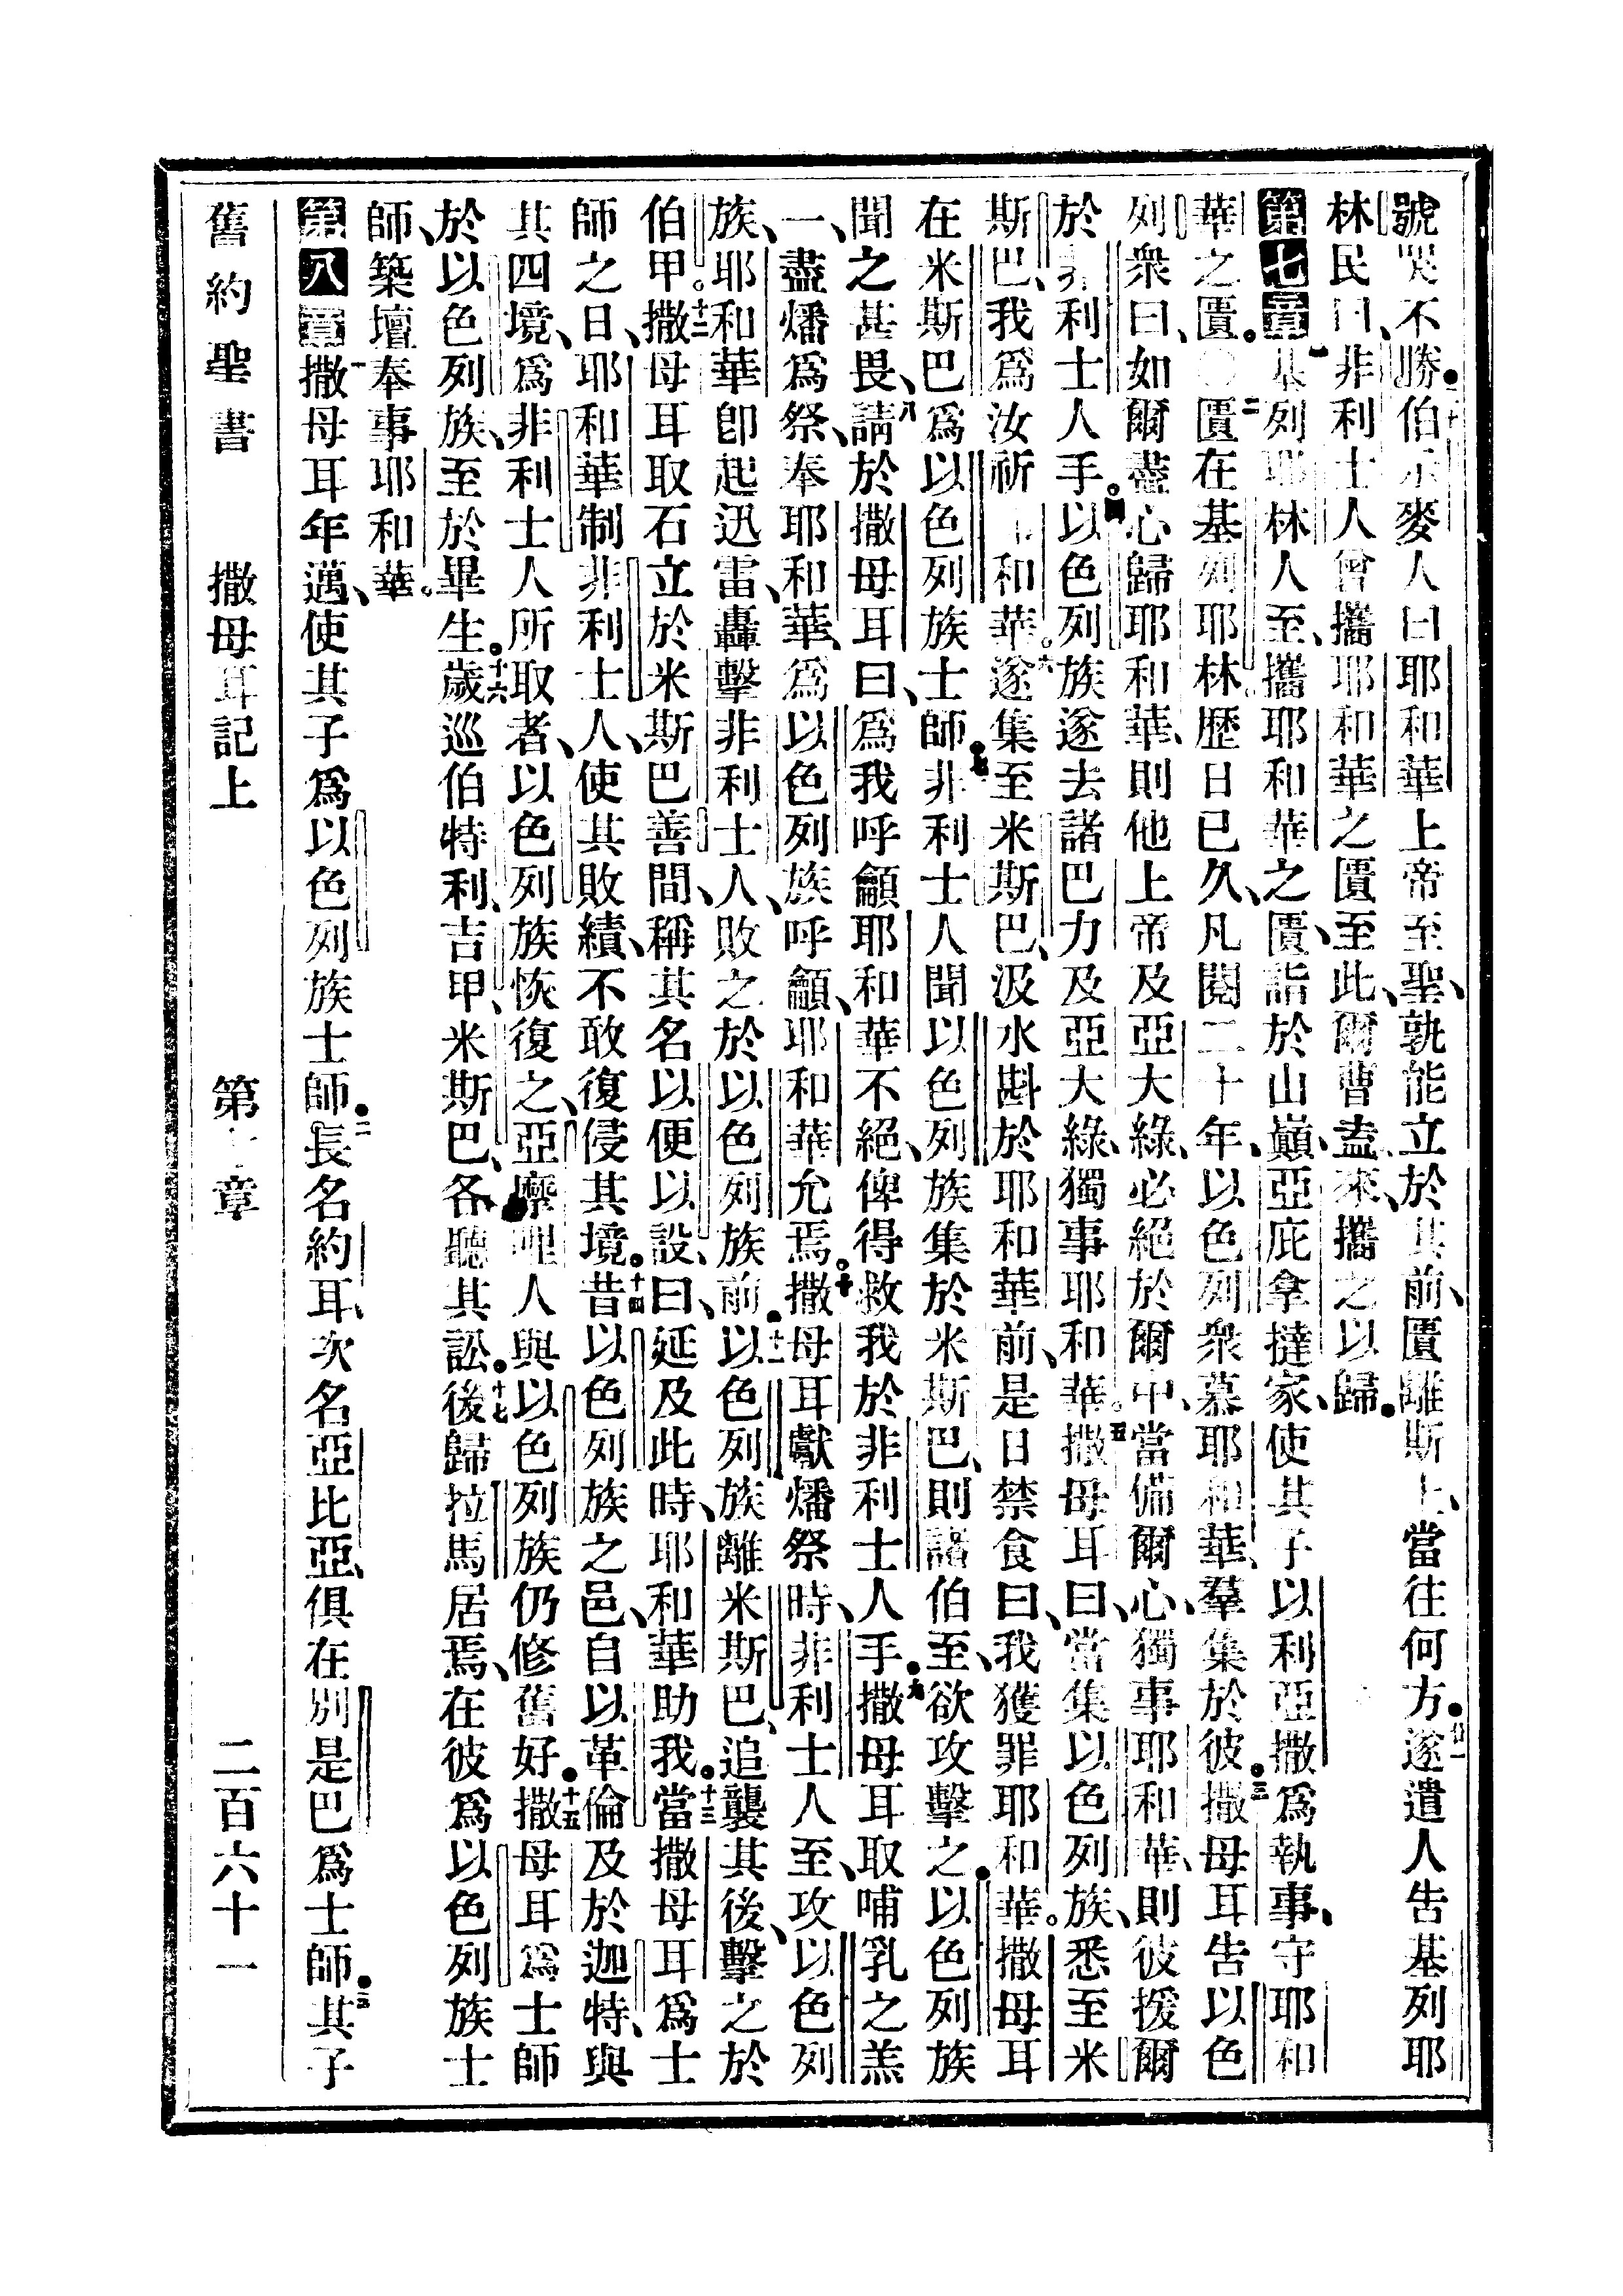 號哭不勝。二十伯示麥人曰耶和華上帝至聖、孰能立於其前、匱離斯土、當往何方。廿一遂遣人吿基列耶
林民曰、非利士人曾攜耶和華之匱至此、爾曹盍來、攜之以歸。
第七章一基列耶林人至、攜耶和華之匱、詣於山巔、亞庇拿撻家、使其子以利亞撒爲執事、守耶和
華之匱。二匱在基列耶林歷日已久、凡閱二十年、以色列衆慕耶和華、羣集於彼。三撒母耳吿以色
列衆曰、如爾盡心歸耶和華、則他上帝及亞大綠、必絕於爾中、當備爾心、獨事耶和華、則彼援爾
於非利士人手。四以色列族遂去諸巴力及亞大綠、獨事耶和華。五撒母耳曰、當集以色列族、悉至米
斯巴、我爲汝祈耶和華。六遂集至米斯巴、汲水斟於耶和華前、是日禁食曰、我獲罪耶和華。撒母耳
在米斯巴爲以色列族士師。七非利士人聞以色列族集於米斯巴、則諸伯至、欲攻擊之。以色列族
聞之甚畏、八請於撒母耳曰、爲我呼籲耶和華不絕、俾得救我於非利士人手。九撒母耳取哺乳之羔
一、盡燔爲祭、奉耶和華、爲以色列族呼籲、耶和華允焉。十撒母耳獻燔祭時、非利士人至、攻以色列
族、耶和華卽起迅雷、轟擊非利士人、敗之於以色列族前。十一以色列族離米斯巴、追襲其後、擊之於
伯甲。十二撒母耳取石立於米斯巴善間、稱其名以便以設、曰、延及此時、耶和華助我。十三當撒母耳爲士
師之日、耶和華制非利士人、使其敗績、不敢復侵其境。十四昔以色列族之邑、自以革倫及於迦特、與
其四境、爲非利士人所取者、以色列族恢復之、亞摩哩人與以色列族仍修舊好。十五撒母耳爲士師
於以色列族、至於畢生。十六歲巡伯特利、吉甲、米斯巴、各聽其訟。十七後歸拉馬居焉、在彼爲以色列族士
師、築壇奉事耶和華。
第八章一撒母耳年邁、使其子爲以色列族士師。二長名約耳、次名亞比亞、俱在別是巴爲士師。三其子
舊約聖書　撒母耳記上　第七章　二百六十一